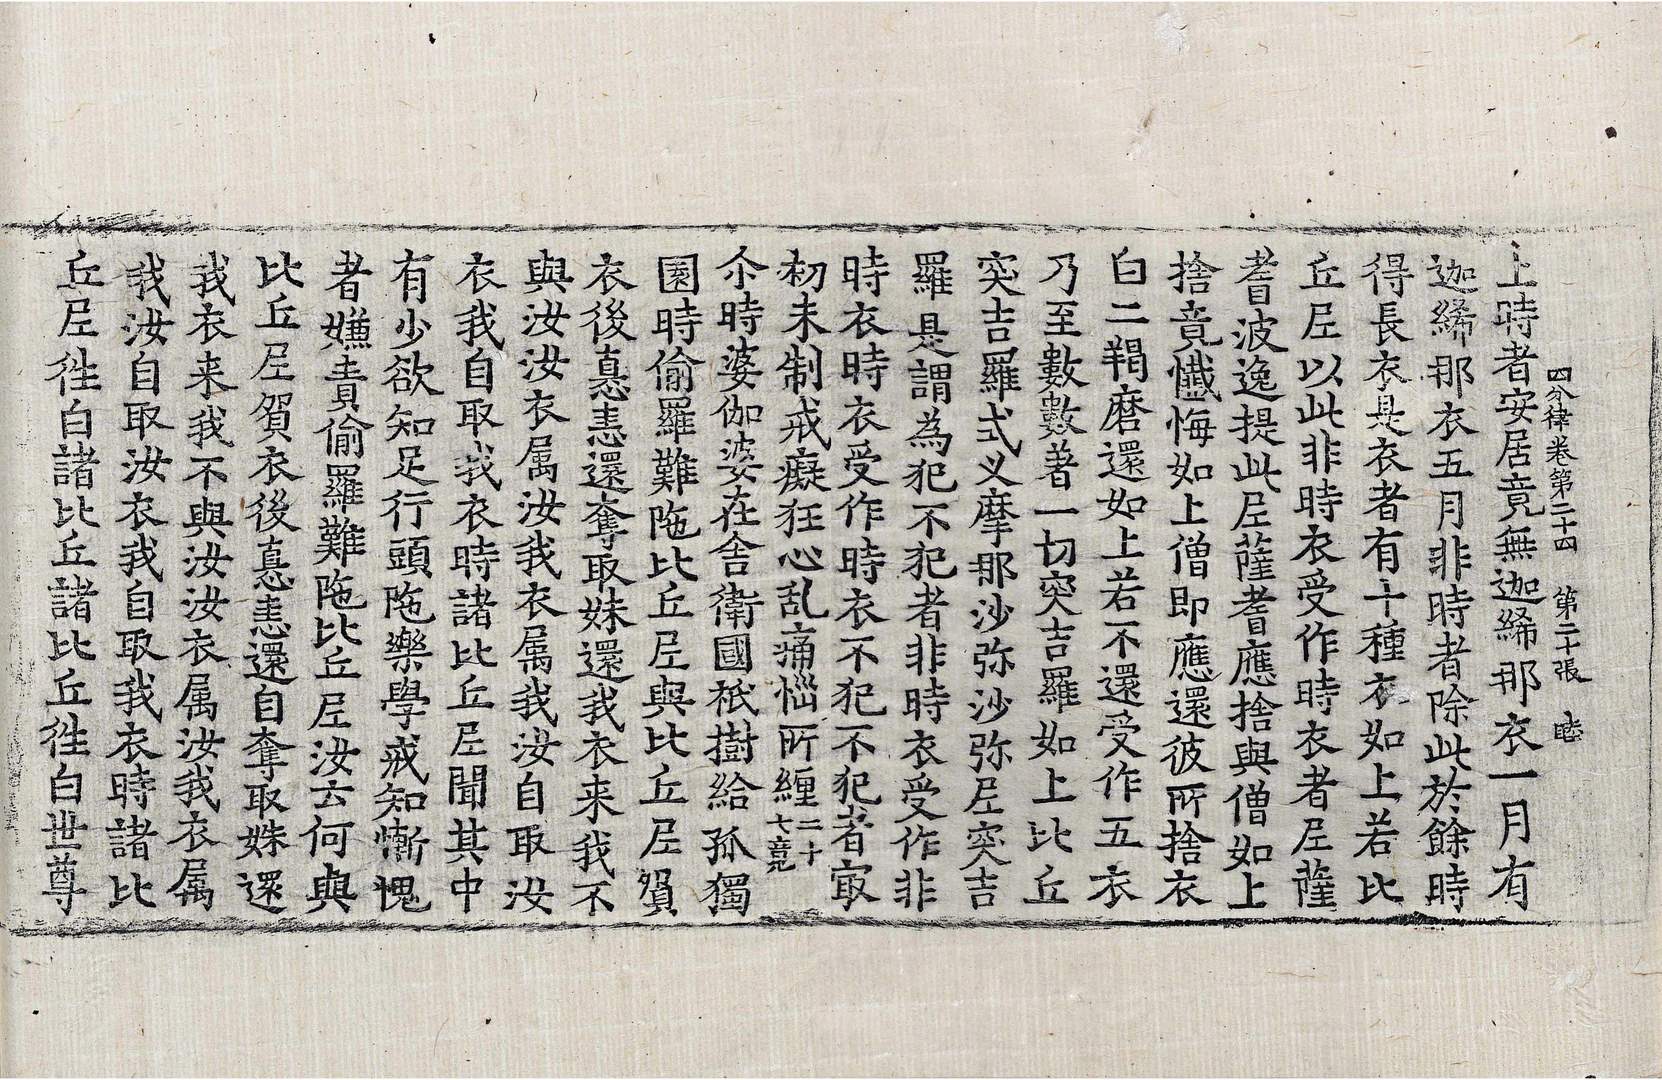 四分律卷第二十四 第二十張 睦
上時者安居竟無迦絺那衣一月有
迦絺那衣五月非時者除此於餘時
得長衣是衣者有十種衣如上若比
丘尼以此非時衣受作時衣者尼薩
耆波逸提此尼薩耆應捨與僧如上
捨竟懺悔如上僧即應還彼所捨衣
白二羯磨還如上若不還受作五衣
乃至數數著一切突吉羅如上比丘
突吉羅式叉摩那沙弥沙弥尼突吉
羅是謂為犯不犯者非時衣受作非
時衣時衣受作時衣不犯不犯者㝡
初未制戒癡狂心乱痛惱所纏二十七竟
尒時婆伽婆在舍衛國祇樹給孤獨
園時偷羅難陁比丘尼與比丘尼貿
衣後瞋恚還奪取妹還我衣来我不
與汝汝衣属汝我衣属我汝自取汝
衣我自取我衣時諸比丘尼聞其中
有少欲知足行頭陁樂學戒知慚愧
者嫌責偷羅難陁比丘尼汝云何與
比丘尼貿衣後瞋恚還自奪取姝還
我衣来我不與汝汝衣属汝我衣属
我汝自取汝衣我自取我衣時諸比
丘尼往白諸比丘諸比丘往白世尊